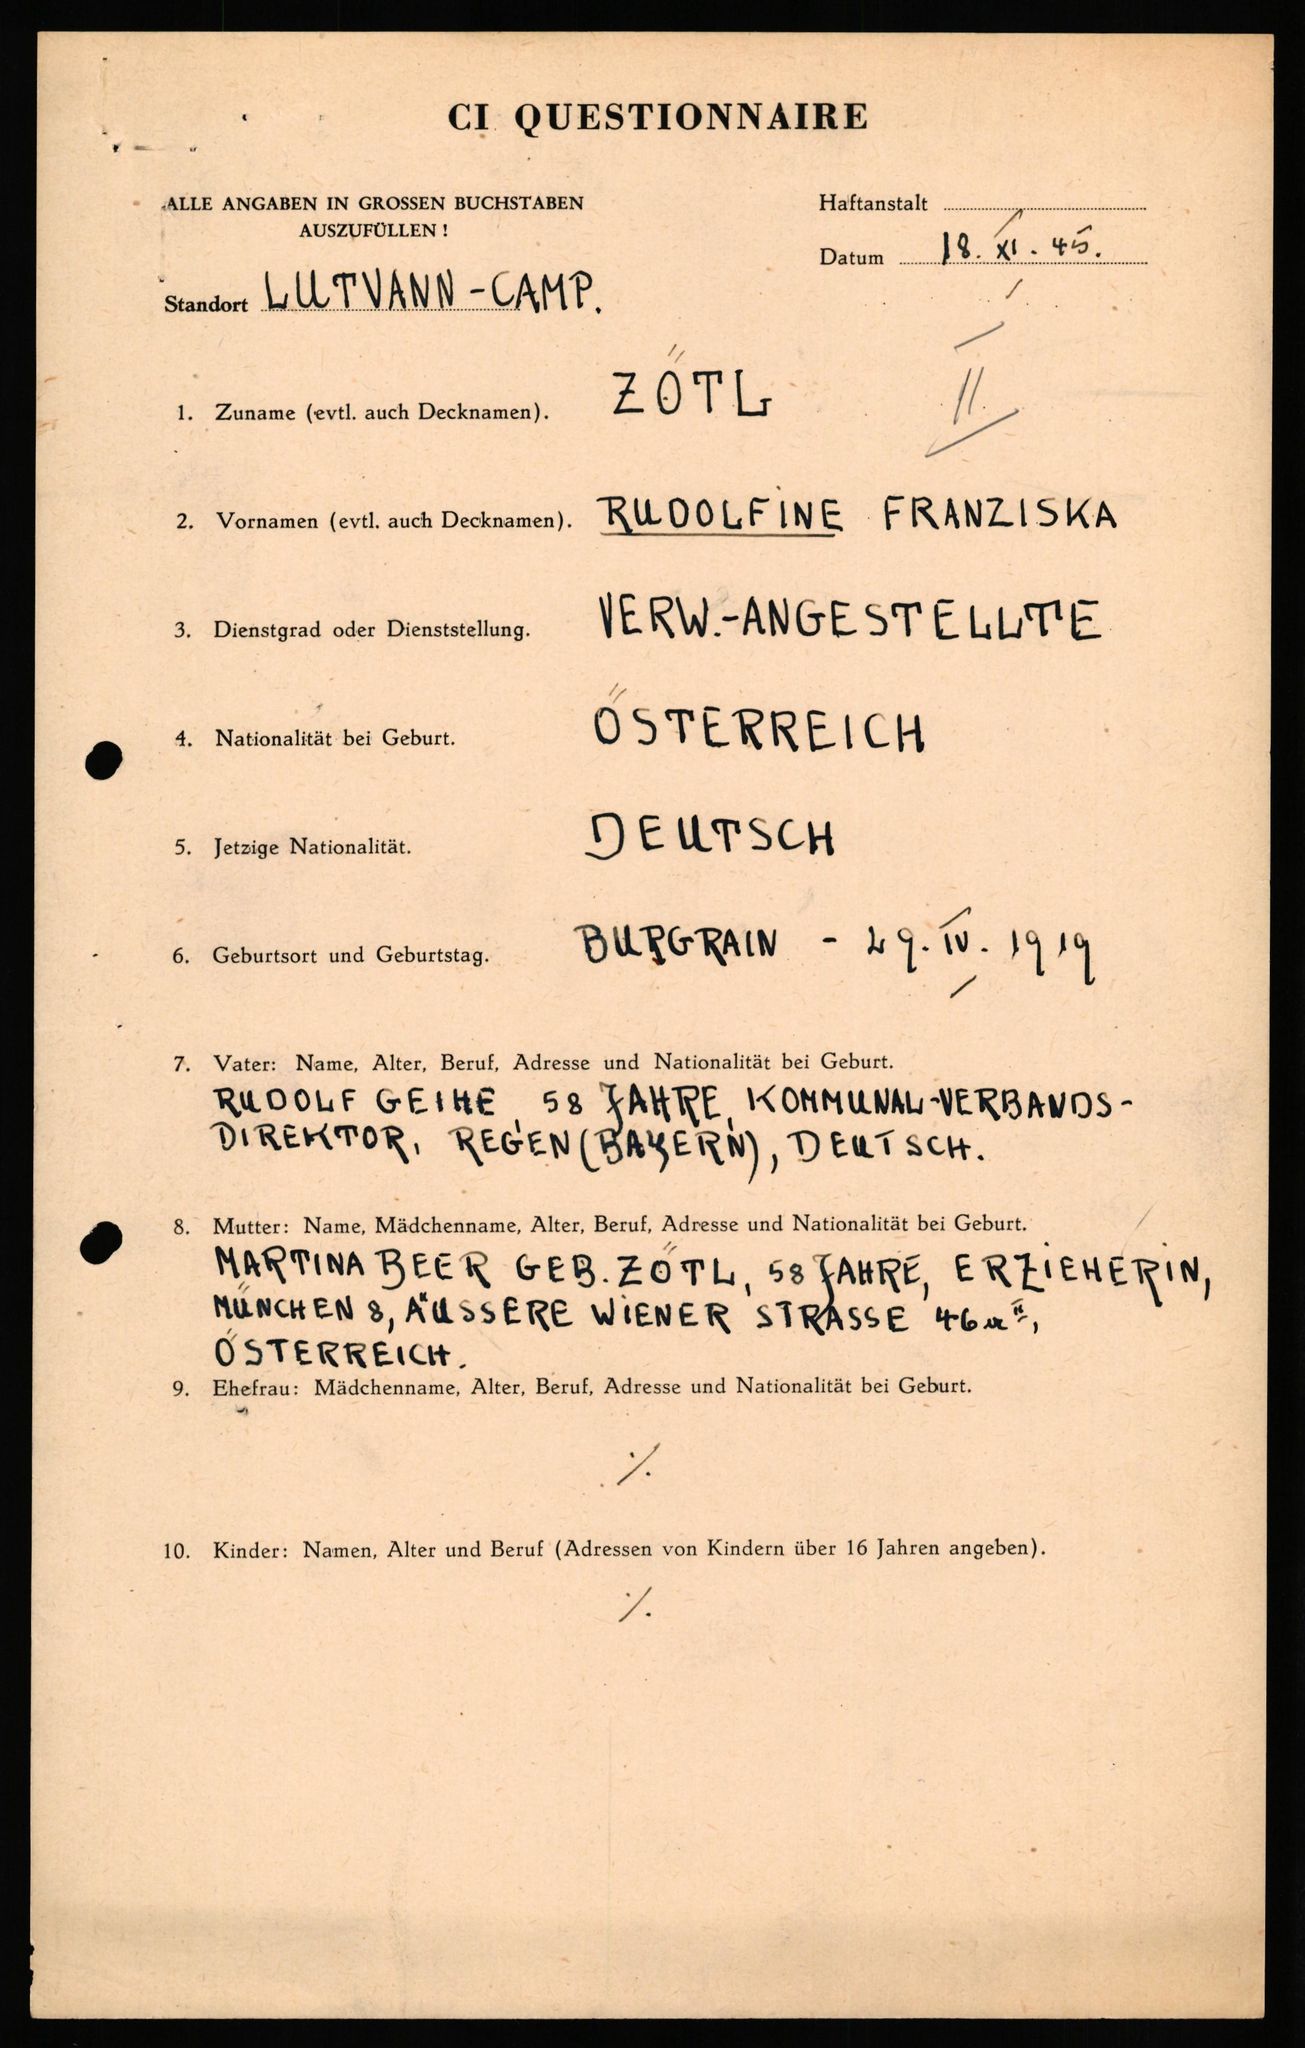 CI QUESTIONNAIRE
ALLE ANGABEN IN GROSSEN BUCHSTABEN
AUSZUFÜLLEN!
Haftanstalt
Datum 18. XI. 45.
Standort LUTVANN-CAMP.
II
1. Zuname (evtl. auch Decknamen). ZÖTL
2. Vornamen (evtl. auch Decknamen). RUDOLFINE FRANZISKA
3. Dienstgrad oder Dienststellung. VERW.-ANGESTELLTE
4. Nationalität bei Geburt. ÖSTERREICH
5. Jetzige Nationalität. DEUTSCH
6. Geburtsort und Geburtstag. BURGRAIN - 29. IV. 1919
7. Vater: Name, Alter, Beruf, Adresse und Nationalität bei Geburt.
RUDOLF GEIHE, 58 JAHRE, KOMMUNAL-VERBANDS-
DIREKTOR, REGEN (BAYERN), DEUTSCH.
8. Mutter: Name, Mädchenname, Alter, Beruf, Adresse und Nationalität bei Geburt.
MARTINA BEER GEB. ZÖTL, 58 JAHRE, ERZIEHERIN,
MÜNCHEN 8, ÄUSSERE WIENER STRASSE 46a II,
ÖSTERREICH.
9. Ehefrau: Mädchenname, Alter, Beruf, Adresse und Nationalität bei Geburt.
./.
10. Kinder: Namen, Alter und Beruf (Adressen von Kindern über 16 Jahren angeben).
./.